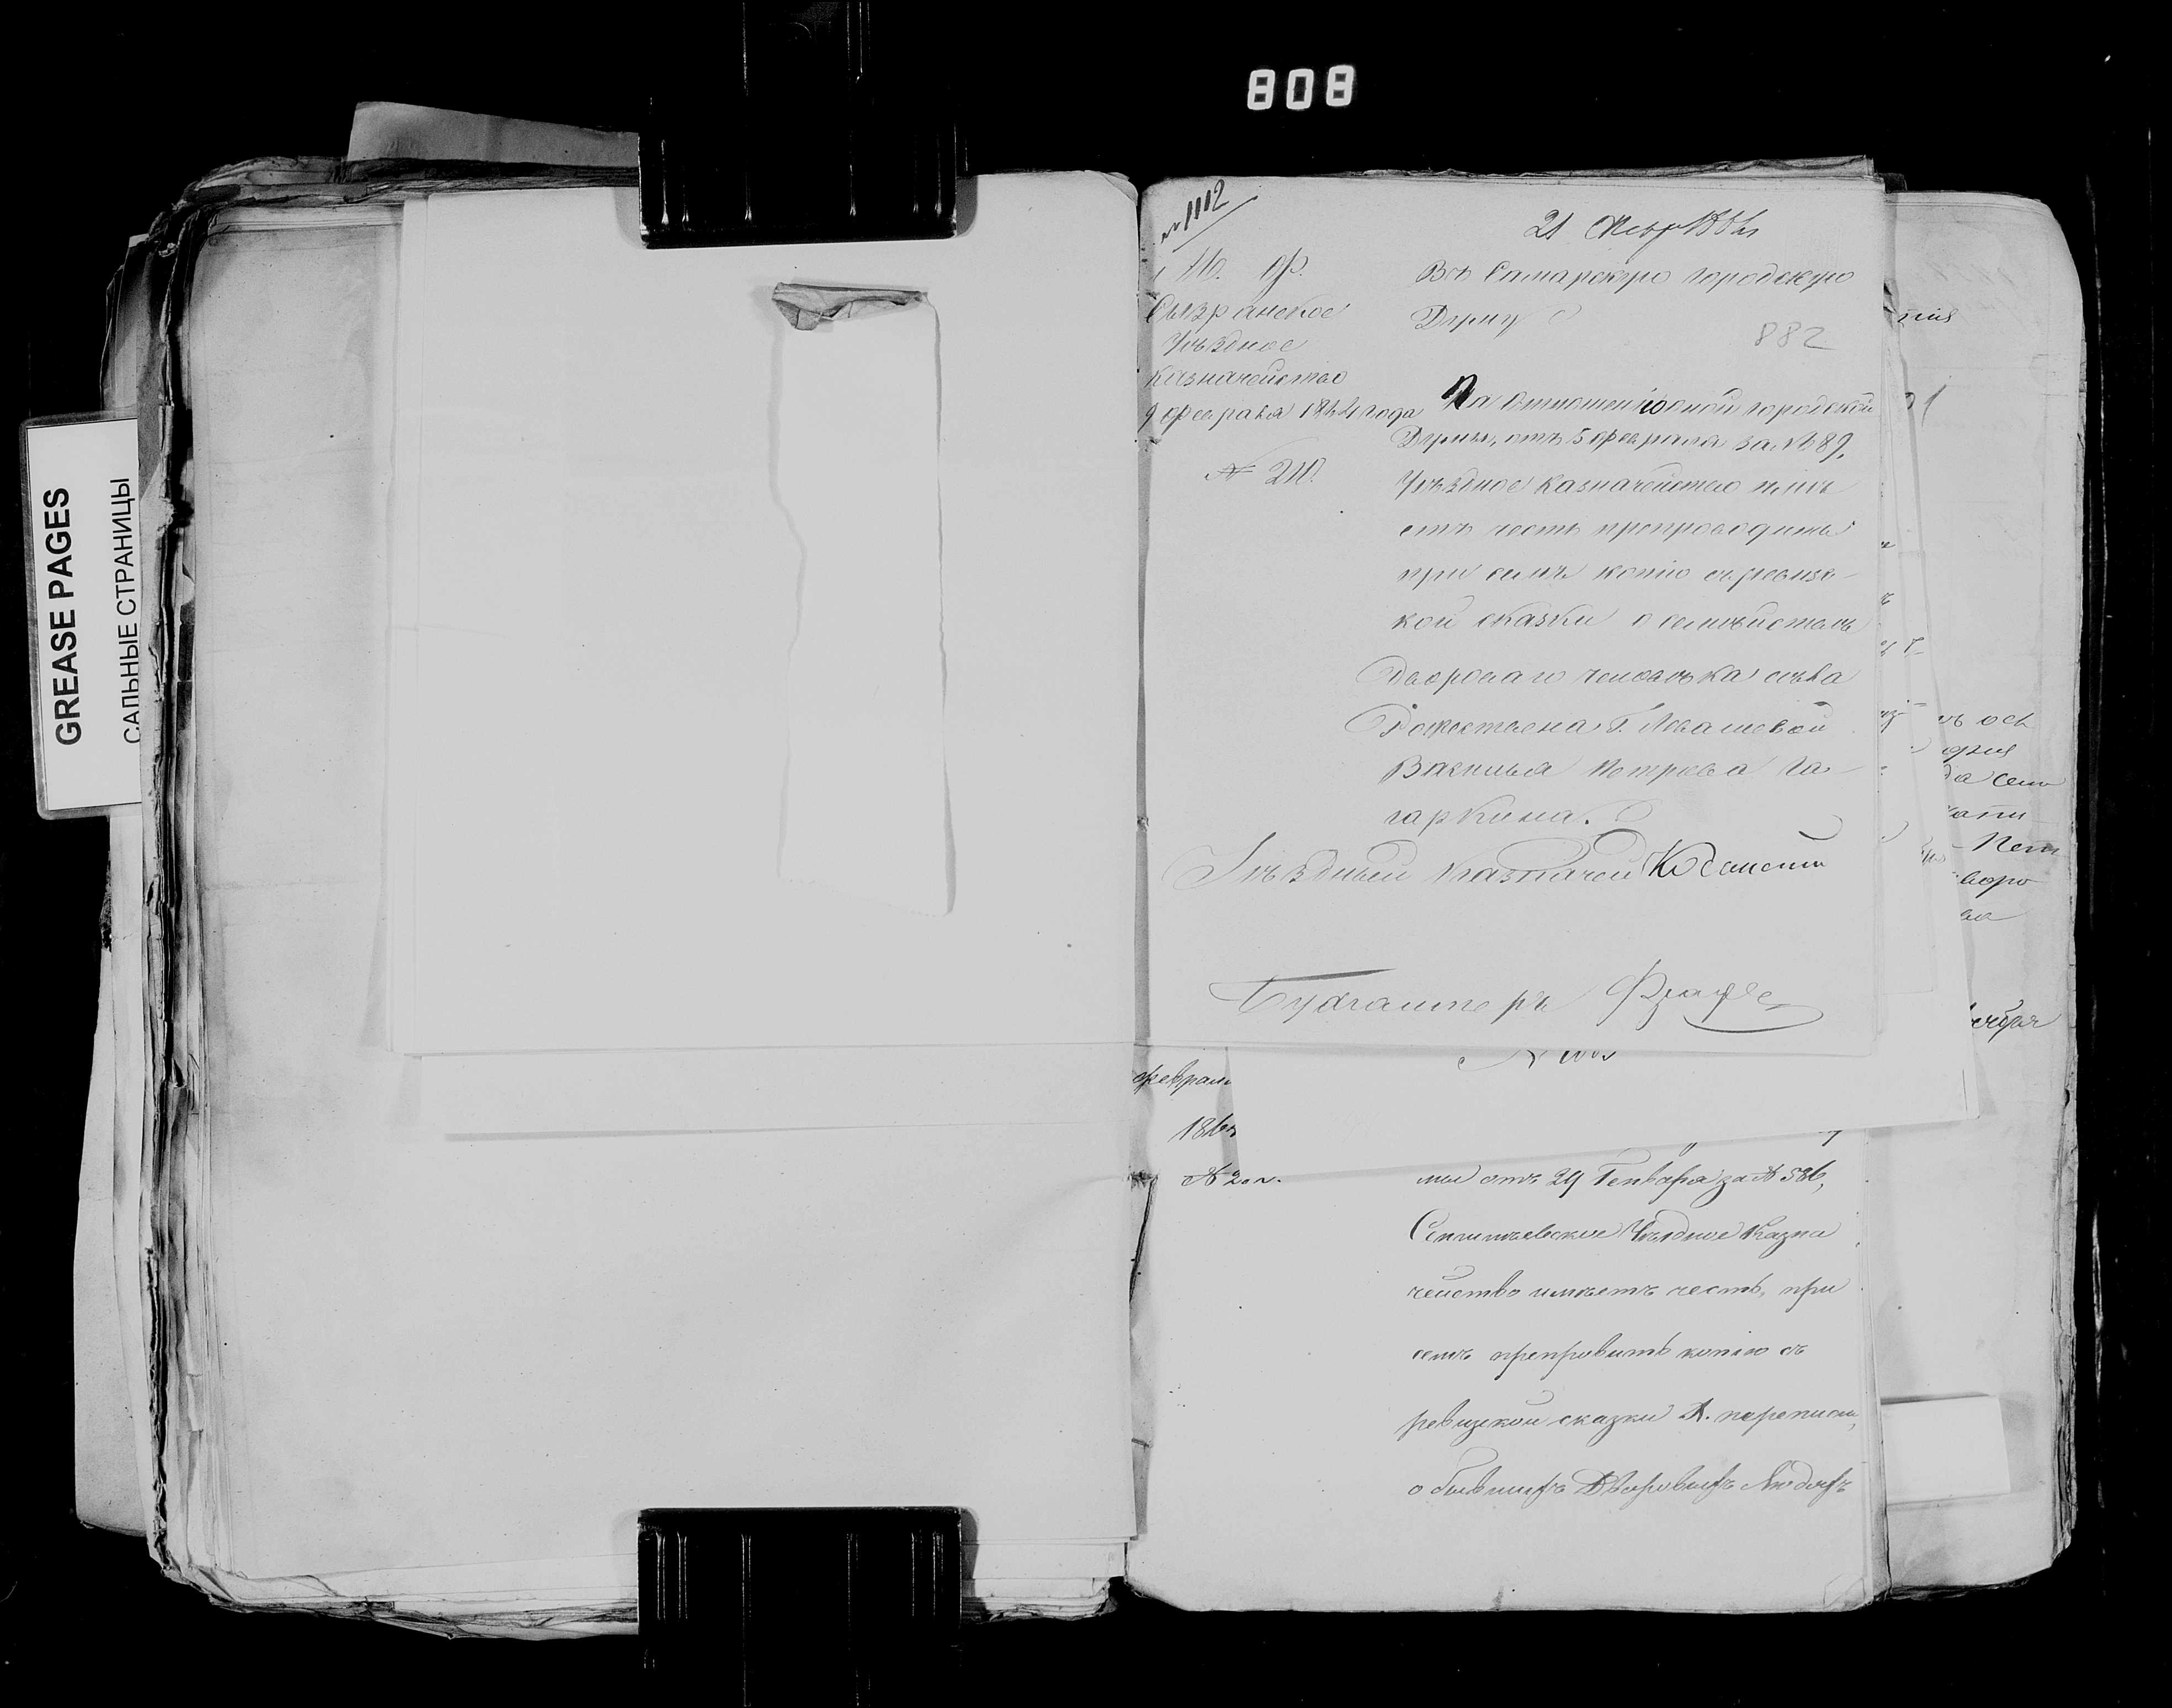 808
GREASE PAGES
САЛЬНЫЕ СТРАНИЦЫ
№ 1112
21 Февр 1864
М. Ф.
Сызранское
Уѣздное
Казначейство
9 февраля 1864 года
№ 210.
Въ Самарскую городскую
Думу
882
На отношение оной городской
Думы, отъ 5 февраля за № 89,
Уѣздное Казначейство имѣ
етъ честь препроводить
при семъ копію съ ревиз-
кой сказки о семействѣ
Двороваго человѣка села
Рождествена Г. Левашевой
Василья Петрова Га-
гаркина.
Уѣздный Казначей
Бухгалтеръ
феврал
186
№
мы отъ 29 Генваря за № 586,
Уѣздное Казна
чейство имѣетъ честь, при
семъ препровить копію съ
ревизкой сказки X. переписи,
о бывшихъ Дворовыхъ Людяхъ